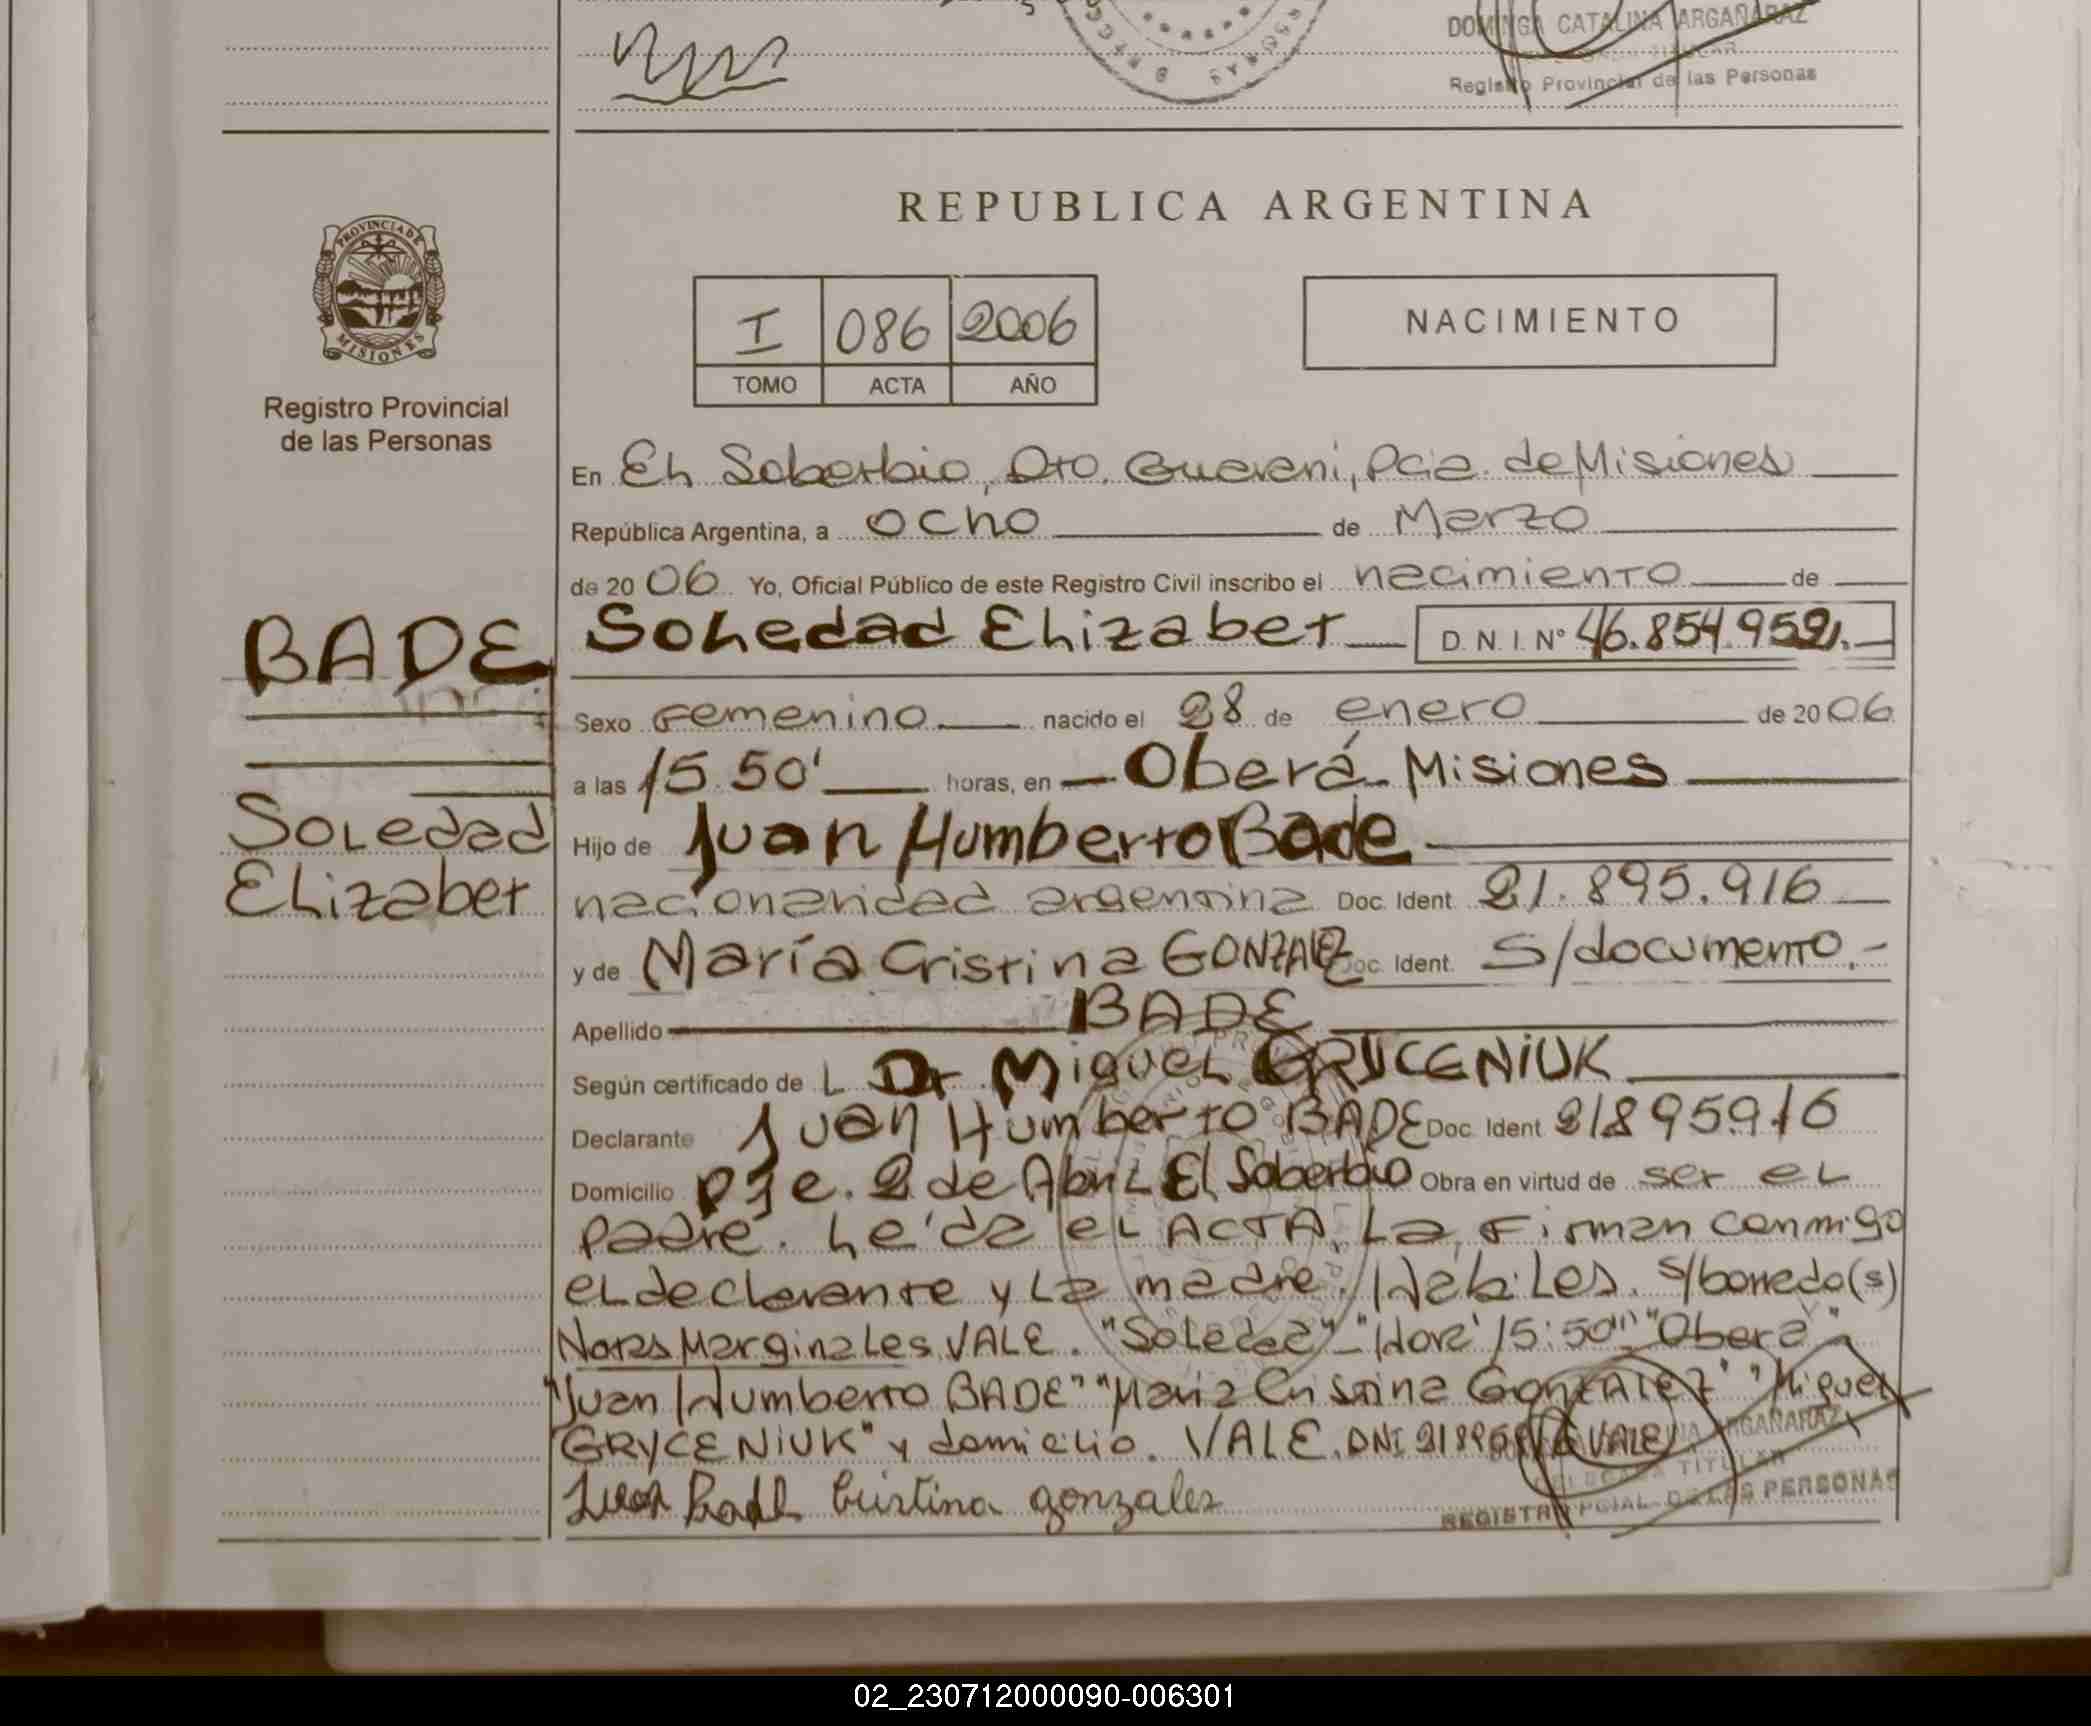 DOMINGA CATALINA ARGAÑARAZ
Registro Provincial de las Personas
PROVINCIA DE
MISIONES
Registro Provincial
de las Personas
REPUBLICA ARGENTINA
I 086 2006
TOMO ACTA AÑO
NACIMIENTO
En EL Soberbio, Dto. Guarani, Pcia. de Misiones
República Argentina, a ocho de Marzo
de 20 06 Yo, Oficial Público de este Registro Civil inscribo el nacimiento de
BADE
Soledad Elizabet D.N.I. Nº 46.854.952.
Sexo Femenino nacido el 28 de enero de 20 06
a las 15.50' horas, en Oberá Misiones
Soledad
Elizabet
Hijo de Juan Humberto Bade
nacionalidad argentina Doc. Ident. 21.895.916
y de María Cristina GONZALEZ Doc. Ident. S/documento.
Apellido BADE
Según certificado de L Dr Miguel GRYCENIUK
Declarante Juan Humberto BADE Doc. Ident 21895916
Domicilio Pje. 2 de Abril El Soberbio Obra en virtud de ser el
padre. Leída el ACTA, La Firman conmigo
el declarante y La madre. Hábiles. s/borrado(s)
Notas Marginales VALE. "Soledad" "Hora 15:50'" "Obera"
"Juan Humberto BADE" "Maria Cristina Gonzalez" "Miguel
GRYCENIUK" y domicilio. VALE. DNI VALE
Juan Bade Cristina gonzalez
ARGAÑARAZ
DELEGADA TITULAR
REGISTRO PCIAL. DE LAS PERSONAS
02_230712000090-006301